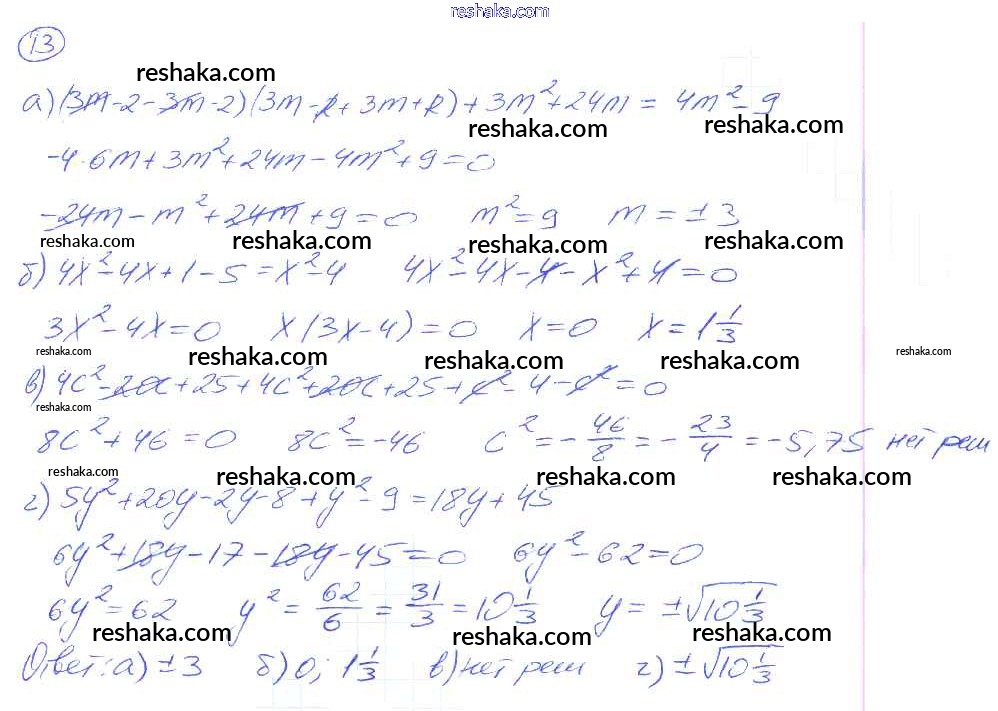 reshaka.com
13
reshaka.com
а) (3m-2-3m-2)(3m-2+3m+2)+3m²+24m = 4m²-9
reshaka.com reshaka.com
-4·6m+3m²+24m-4m²+9=0
-24m-m²+24m+9=0 m²=9 m=±3
reshaka.com reshaka.com reshaka.com reshaka.com
б) 4x²-4x+1-5=x²-4 4x²-4x-4-x²+4=0
3x²-4x=0 x(3x-4)=0 x=0 x=1 1/3
reshaka.com reshaka.com reshaka.com reshaka.com reshaka.com
в) 4c²-20c+25+4c²+20c+25+c²-4-c²=0
reshaka.com
8c²+46=0 8c²=-46 c²=-46/8=-23/4=-5,75 нет реш
reshaka.com reshaka.com reshaka.com reshaka.com
г) 5y²+20y-2y-8+y²-9=18y+45
6y²+18y-17-18y-45=0 6y²-62=0
6y²=62 y²=62/6=31/3=10 1/3 y=±√10 1/3
reshaka.com reshaka.com reshaka.com
Ответ: а) ±3 б) 0; 1 1/3 в) нет реш г) ±√10 1/3